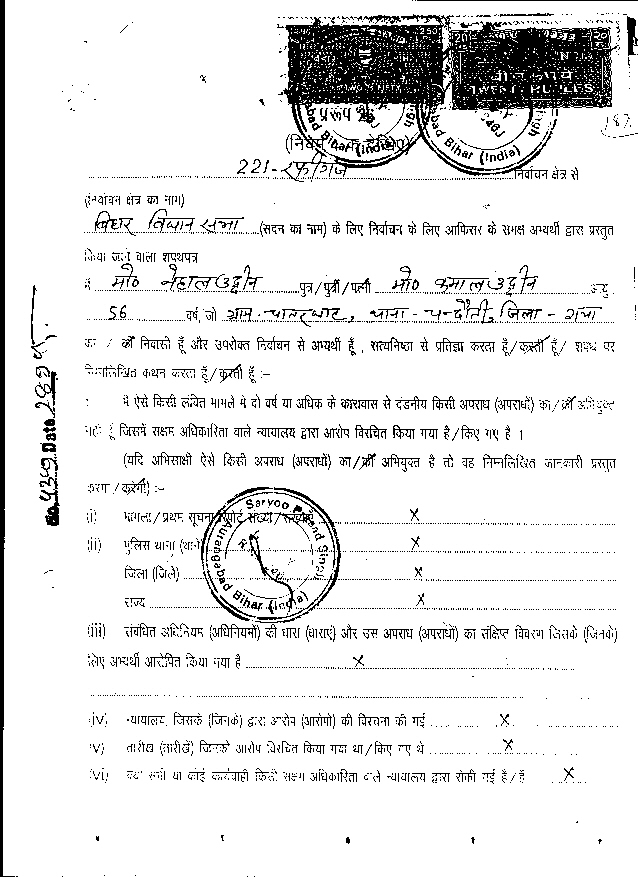 TWENTY RUPEES
187
प्ररूप 26
221-रफीगंज निर्वाचन क्षेत्र से
(निर्वाचन क्षेत्र का नाम)
बिहार विधान सभा (सदन का नाम) के लिए निर्वाचन के लिए आफिसर के समक्ष अभ्यर्थी द्वारा प्रस्तुत
किया जाने वाला शपथपत्र
मैं मो० नेहालउद्दीन पुत्र/पुत्री/पत्नी मो० कमालउद्दीन आयु
56 वर्ष, जो ग्राम- थाना-चन्दौती, जिला-गया
का / की निवासी हूँ और उपरोक्त निर्वाचन से अभ्यर्थी हूँ, सत्यनिष्ठा से प्रतिज्ञा करता हूँ/करती हूँ/ शपथ पर
निम्नलिखित कथन करता हूँ/करती हूँ :-
मैं ऐसे किसी लंबित मामले में दो वर्ष या अधिक के कारावास से दंडनीय किसी अपराध (अपराधों) का/की अभियुक्त
नहीं हूँ जिसमें सक्षम अधिकारिता वाले न्यायालय द्वारा आरोप विरचित किया गया है/किए गए है ।
(यदि अभिसाक्षी ऐसे किसी अपराध (अपराधों) का/की अभियुक्त है तो वह निम्नलिखित जानकारी प्रस्तुत
करेगा / करेगी) :-
(i) मामला/प्रथम सूचना रिपोर्ट संख्या/संख्याएं X
(ii) पुलिस थाना (थाने) X
जिला (जिले) X
राज्य X
(iii) संबंधित अधिनियम (अधिनियमों) की धारा (धाराएं) और उस अपराध (अपराधों) का संक्षिप्त विवरण जिसके (जिनके)
लिए अभ्यर्थी आरोपित किया गया है X
(iv) न्यायालय, जिसके (जिनके) द्वारा आरोप (आरोपों) की विरचना की गई X
(v) तारीख (तारीखें) जिनको आरोप विरचित किया गया था/किए गए थे X
(vi) क्या सभी या कोई कार्यवाही किसी सक्षम अधिकारिता वाले न्यायालय द्वारा रोकी गई है/हैं X
Bihar (India)
Bihar (India)
Bihar (India)